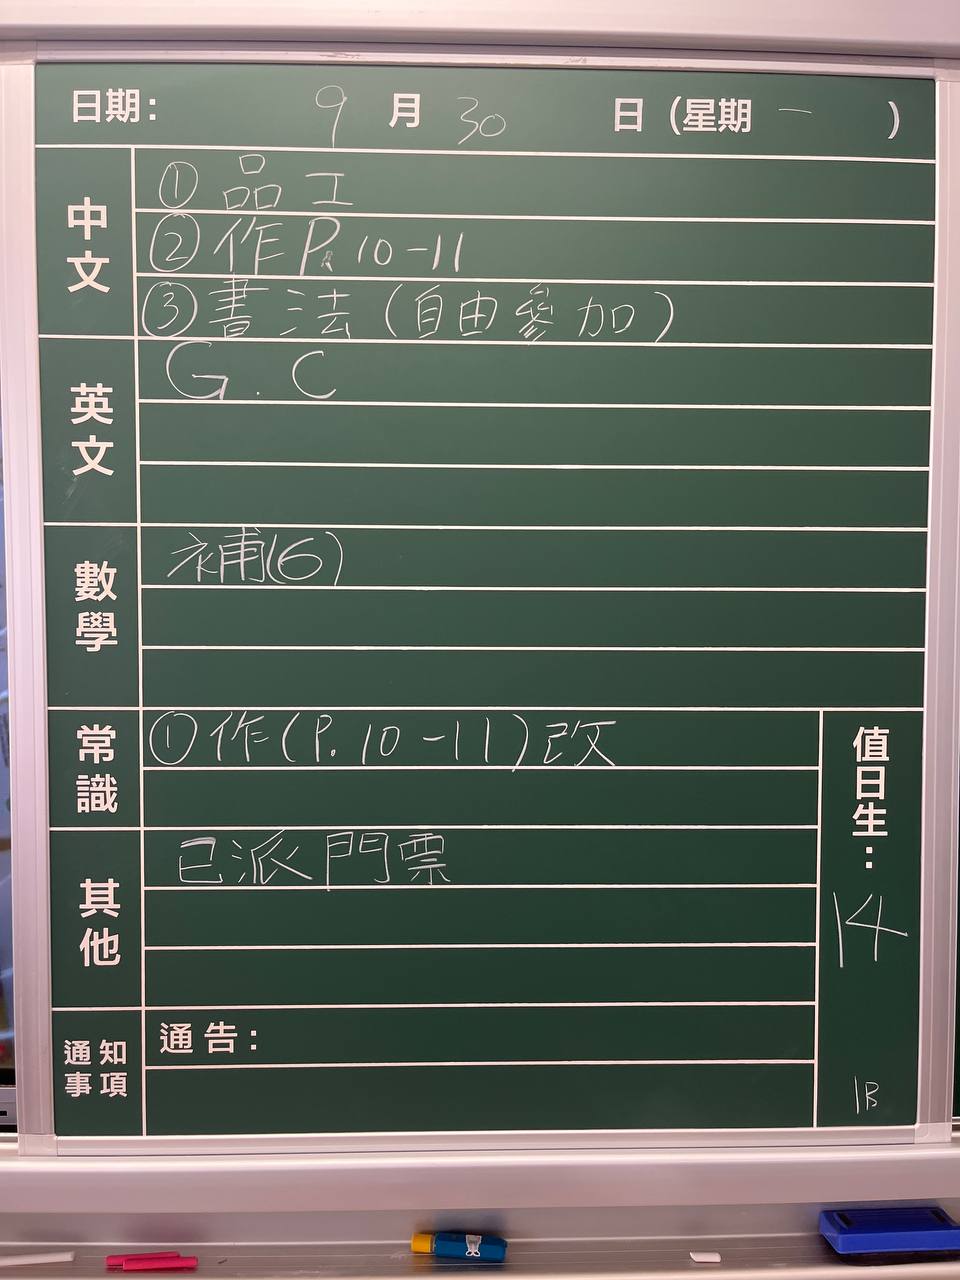 日期： 9 月 30 日（星期 一 ）
中文
① 品工
② 作 P. 10-11
③ 書法（自由參加）
英文
G. C
數學
補(6)
常識
① 作(P. 10-11)改
其他
已派門票
值日生：
14
通知事項
通告：
1B